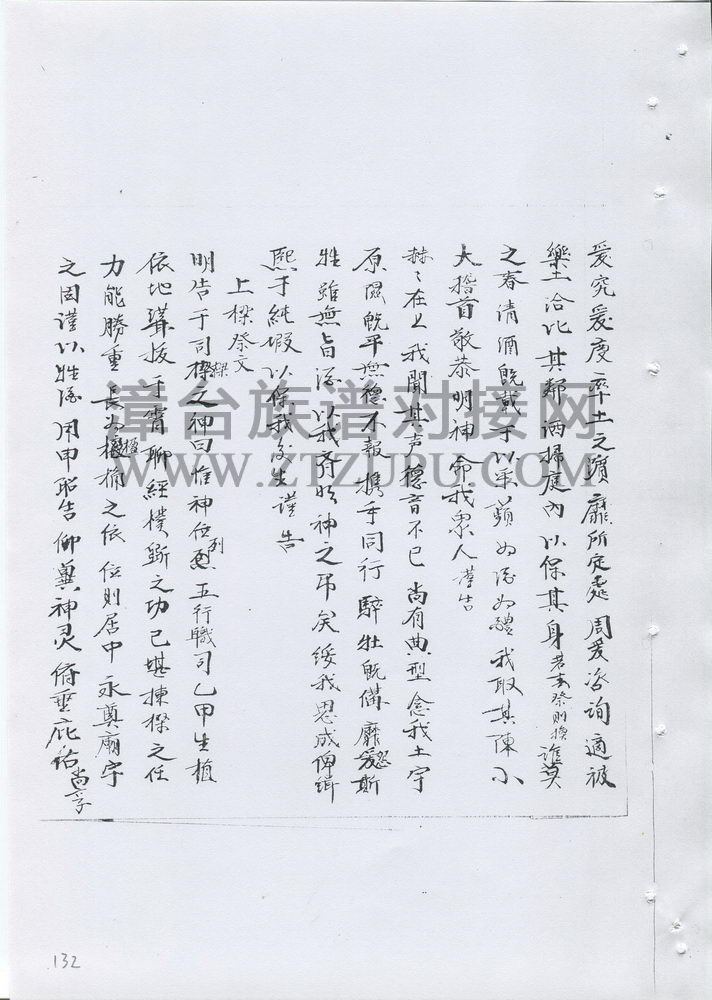 爰究爰度率土之濱靡所定處周爰咨詢適彼
樂土洽比其鄰洒掃庭內以保其身若春祭則換
之春清酒既載于以采蘋為酒為醴我取其陳小
大稽首敬恭明神命我眾人謹告
赫々在上我聞其声德音不已尚有典型念我土宇
原濕既平無德不報携手同行騂牡既備靡愛斯
牲雖無旨酒以我齊明神之吊矣綏我思成俾緝
熙于純嘏以保我後生謹告
上樑祭文
明告于司樑之神曰惟神位列五行職司乙甲生植
依地聳拔于霄聊經樸斲之功已堪棟樑之任
力能勝重長為榱桷之依位則居中永奠廟宇
之固謹以牲酒用申昭告仰冀神灵俯垂庇佑尚享
漳台族谱对接网
WWW.ZTZUPU.COM
132